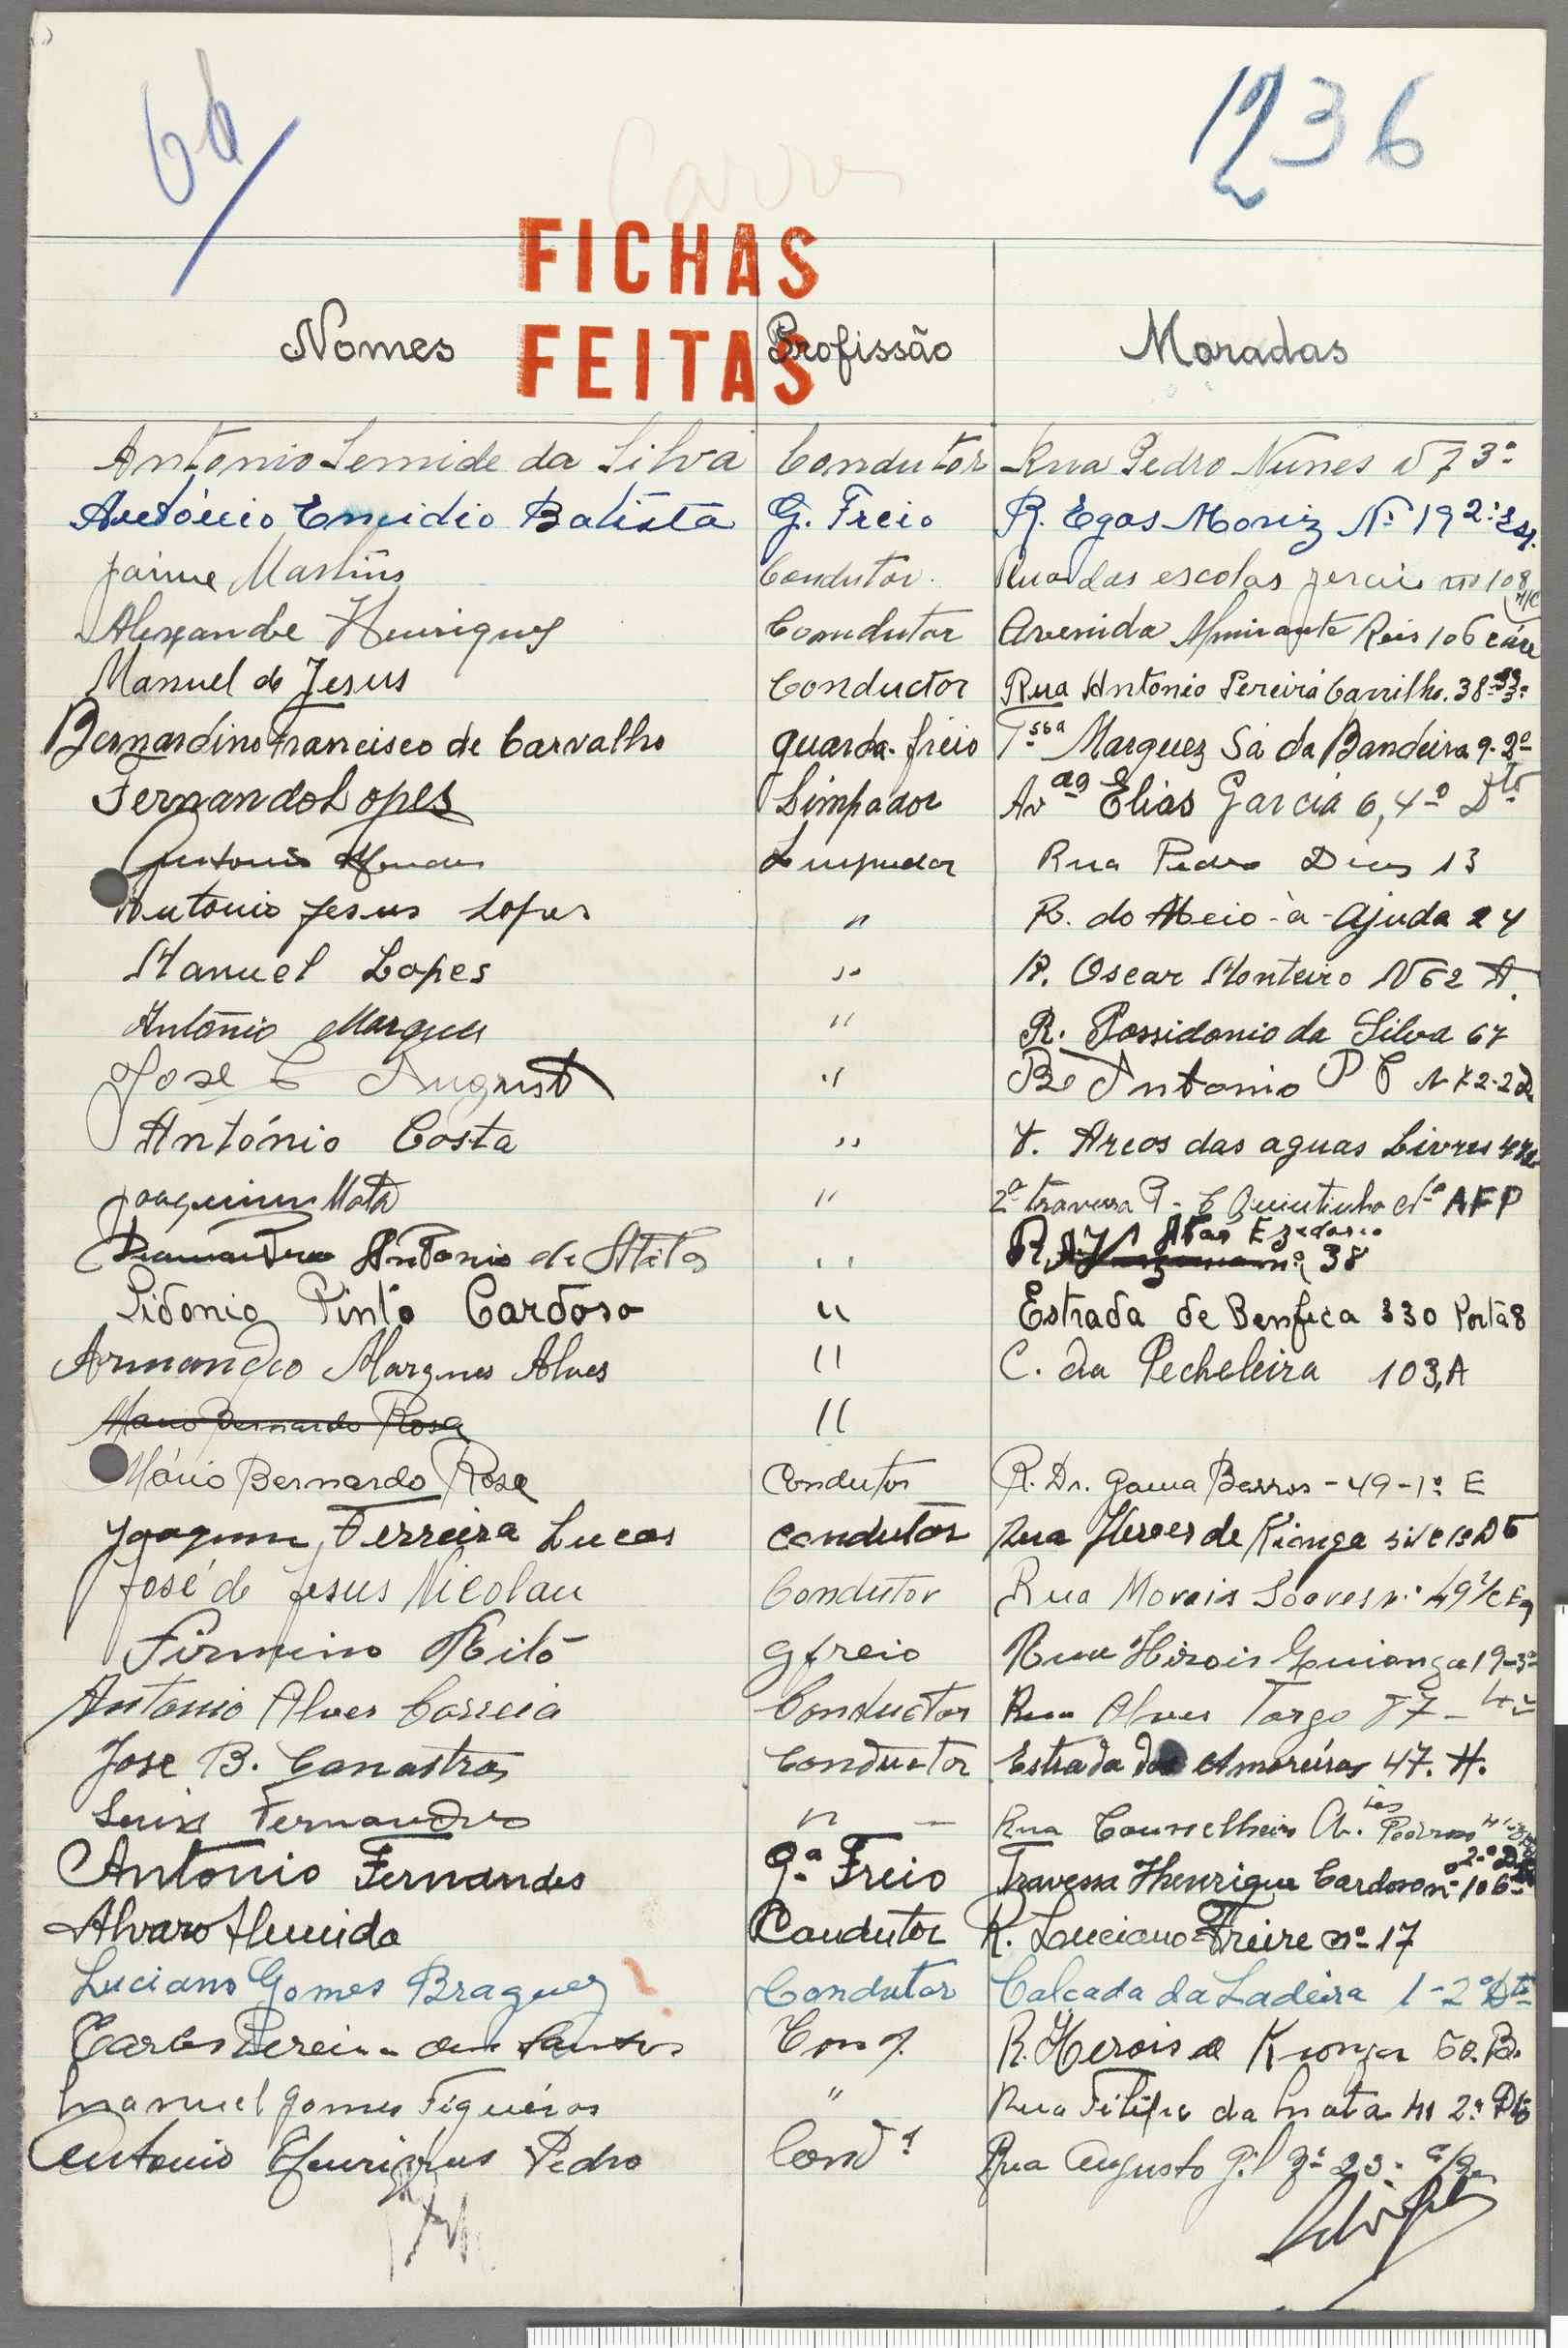 66/
1236
Carris
FICHAS
FEITAS
Nomes Profissão Moradas
Antonio Semide da Silva Condutor Rua Pedro Nunes Nº 7 3º
António Emidio Batista G. Freio R. Egas Moniz Nº 19 2º Esq.
Jaime Martins Condutor Rua das escolas gerais nº 108 r/c
Alexandre Henriques Comdutor Avenida Almirante Reis 106 cave
Manuel de Jesus Conductor Rua Antonio Pereira Carrilho. 38 3º
Bernardino Francisco de Carvalho guarda-freio Tssa Marquez Sá da Bandeira 9-2º
Fernando Lopes Limpador Av Elias Garcia 6, 4º Dto
Antonio Mendes Limpador Rua Pedro Dias 13
Antonio Jesus Lopes " R. do Meio-à-Ajuda 24
Manuel Lopes " R. Oscar Monteiro Nº 62 A.
António Marques " R. Possidonio da Silva 67
Jose C August " Antonio P C
António Costa " T. Arcos das aguas Livres
Joaquim Mota " 2ª travessa P. C Quintinha AFP
Antonio de Matos " R. 38
Sidonio Pinto Cardoso " Estrada de Benfica 330 Porta 8
Armando Marques Alves " C. da Pecheleira 103, A
Mario Bernardo Rosa "
Mário Bernardo Rosa Condutor R. Dr. Gama Barros - 49-1º E
Joaquim Ferreira Lucas condutor Rua Heroes de Kionga
José de Jesus Nicolau Condutor Rua Morais Soares nº 49 r/c Eq
Firmino Rito g freio Rua Hirois Quionga 19-3º
Antonio Alves Correia Conductor Rua Alves Torgo 87-4º
Jose B. Canastra Conductor Estrada das Amoreiras 47. H.
Luiz Fernandes " Rua Counselheiro
António Fernandes Gª Freio Travessa Henrique Cardoso nº 106 2º Dto
Alvaro Almeida Condutor R. Luciano Freire nº 17
Luciano Gomes Braguez Condutor Calçada da Ladeira 1-2º Dto
Carlos Pereira dos Santos Cond. R. Herois de Kionga 50. B.
Manuel Gomes Figueiras " Rua Filipe da Mata 41 2º Dto
Antonio Henriques Pedro Condr Rua Augusto Gil